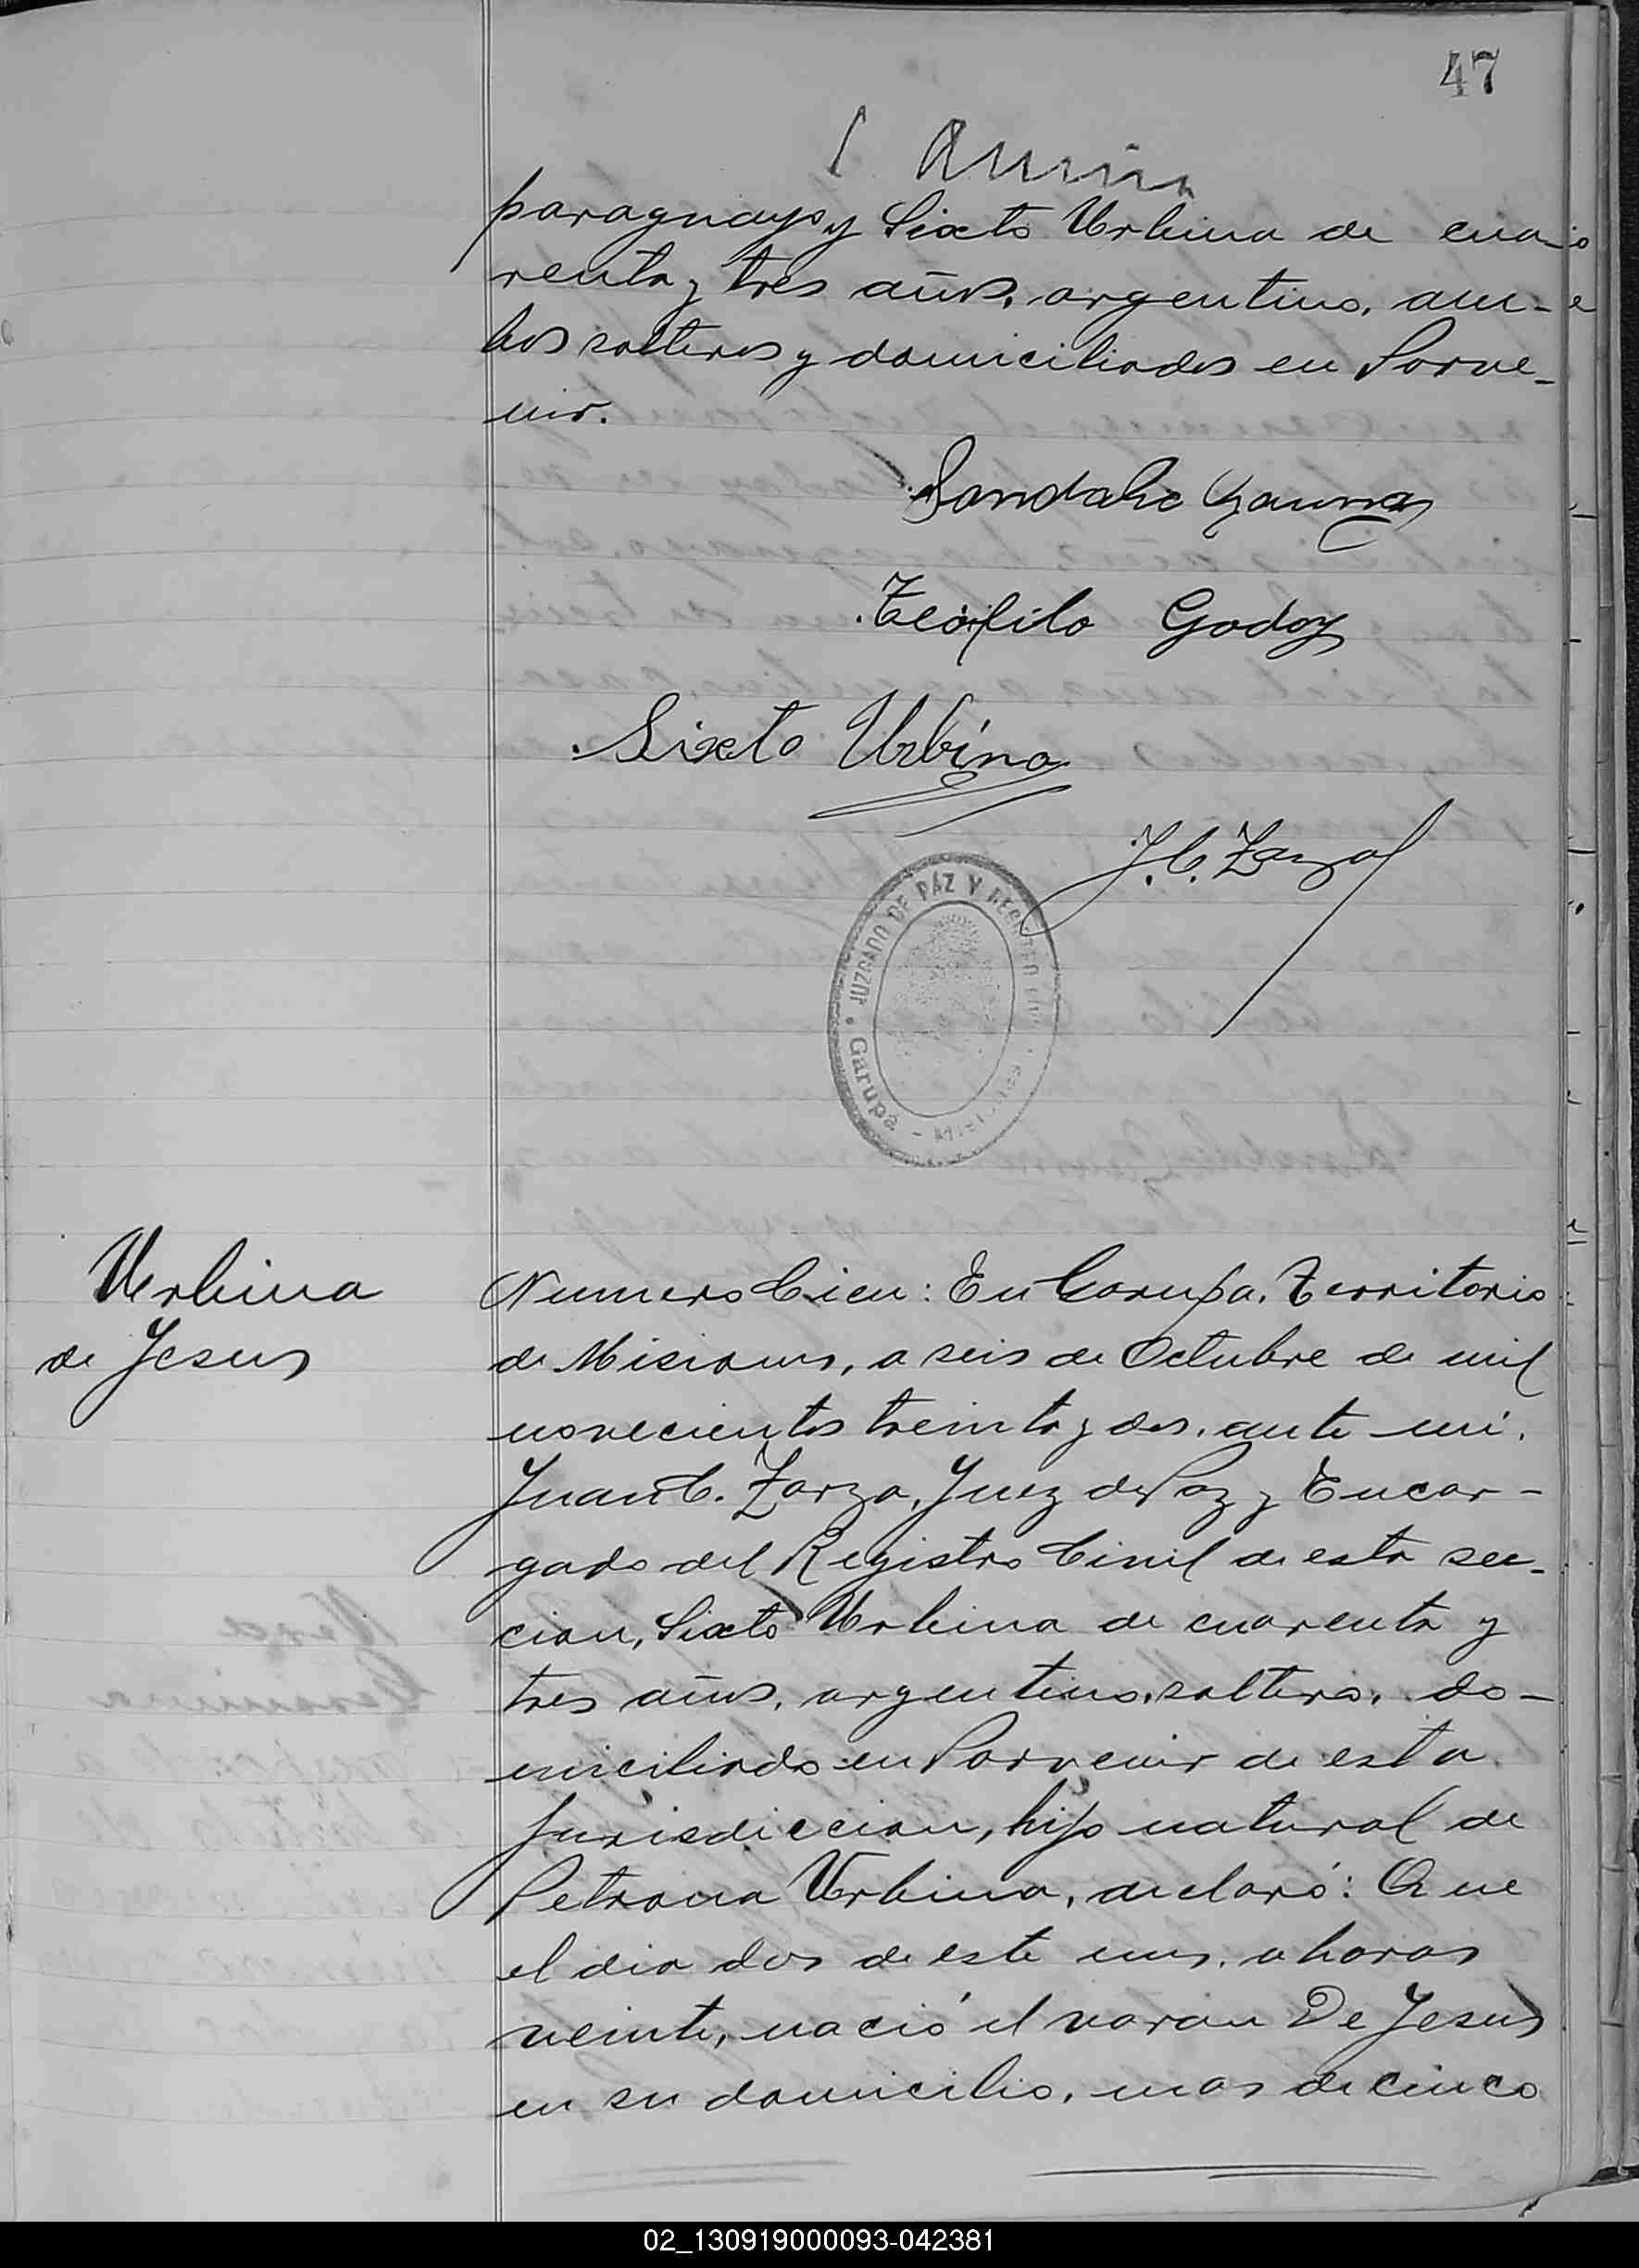 47
paraguayo y Sixto Urbina de cua-
renta y tres años, argentino, am-
bos solteros y domiciliados en Porve-
nir.
Teófilo Godoy
Sixto Urbina
J. C. Zarza
JUZGADO DE PAZ Y REGISTRO CIVIL
Garupá
Urbina
de Jesus
Numero Cien: En Garupa, Territorio
de Misiones, a seis de Octubre de mil
novecientos treinta y dos, ante mi,
Juan C. Zarza, Juez de Paz y Encar-
gado del Registro Civil de esta sec-
cion, Sixto Urbina de cuarenta y
tres años, argentino, soltero, do-
miciliado en Porvenir de esta
jurisdiccion, hijo natural de
Petrona Urbina, declaró: Que
el dia dos de este mes, a horas
veinte, nació el varon De Jesus
en su domicilio, mas de cinco
02_130919000093-042381